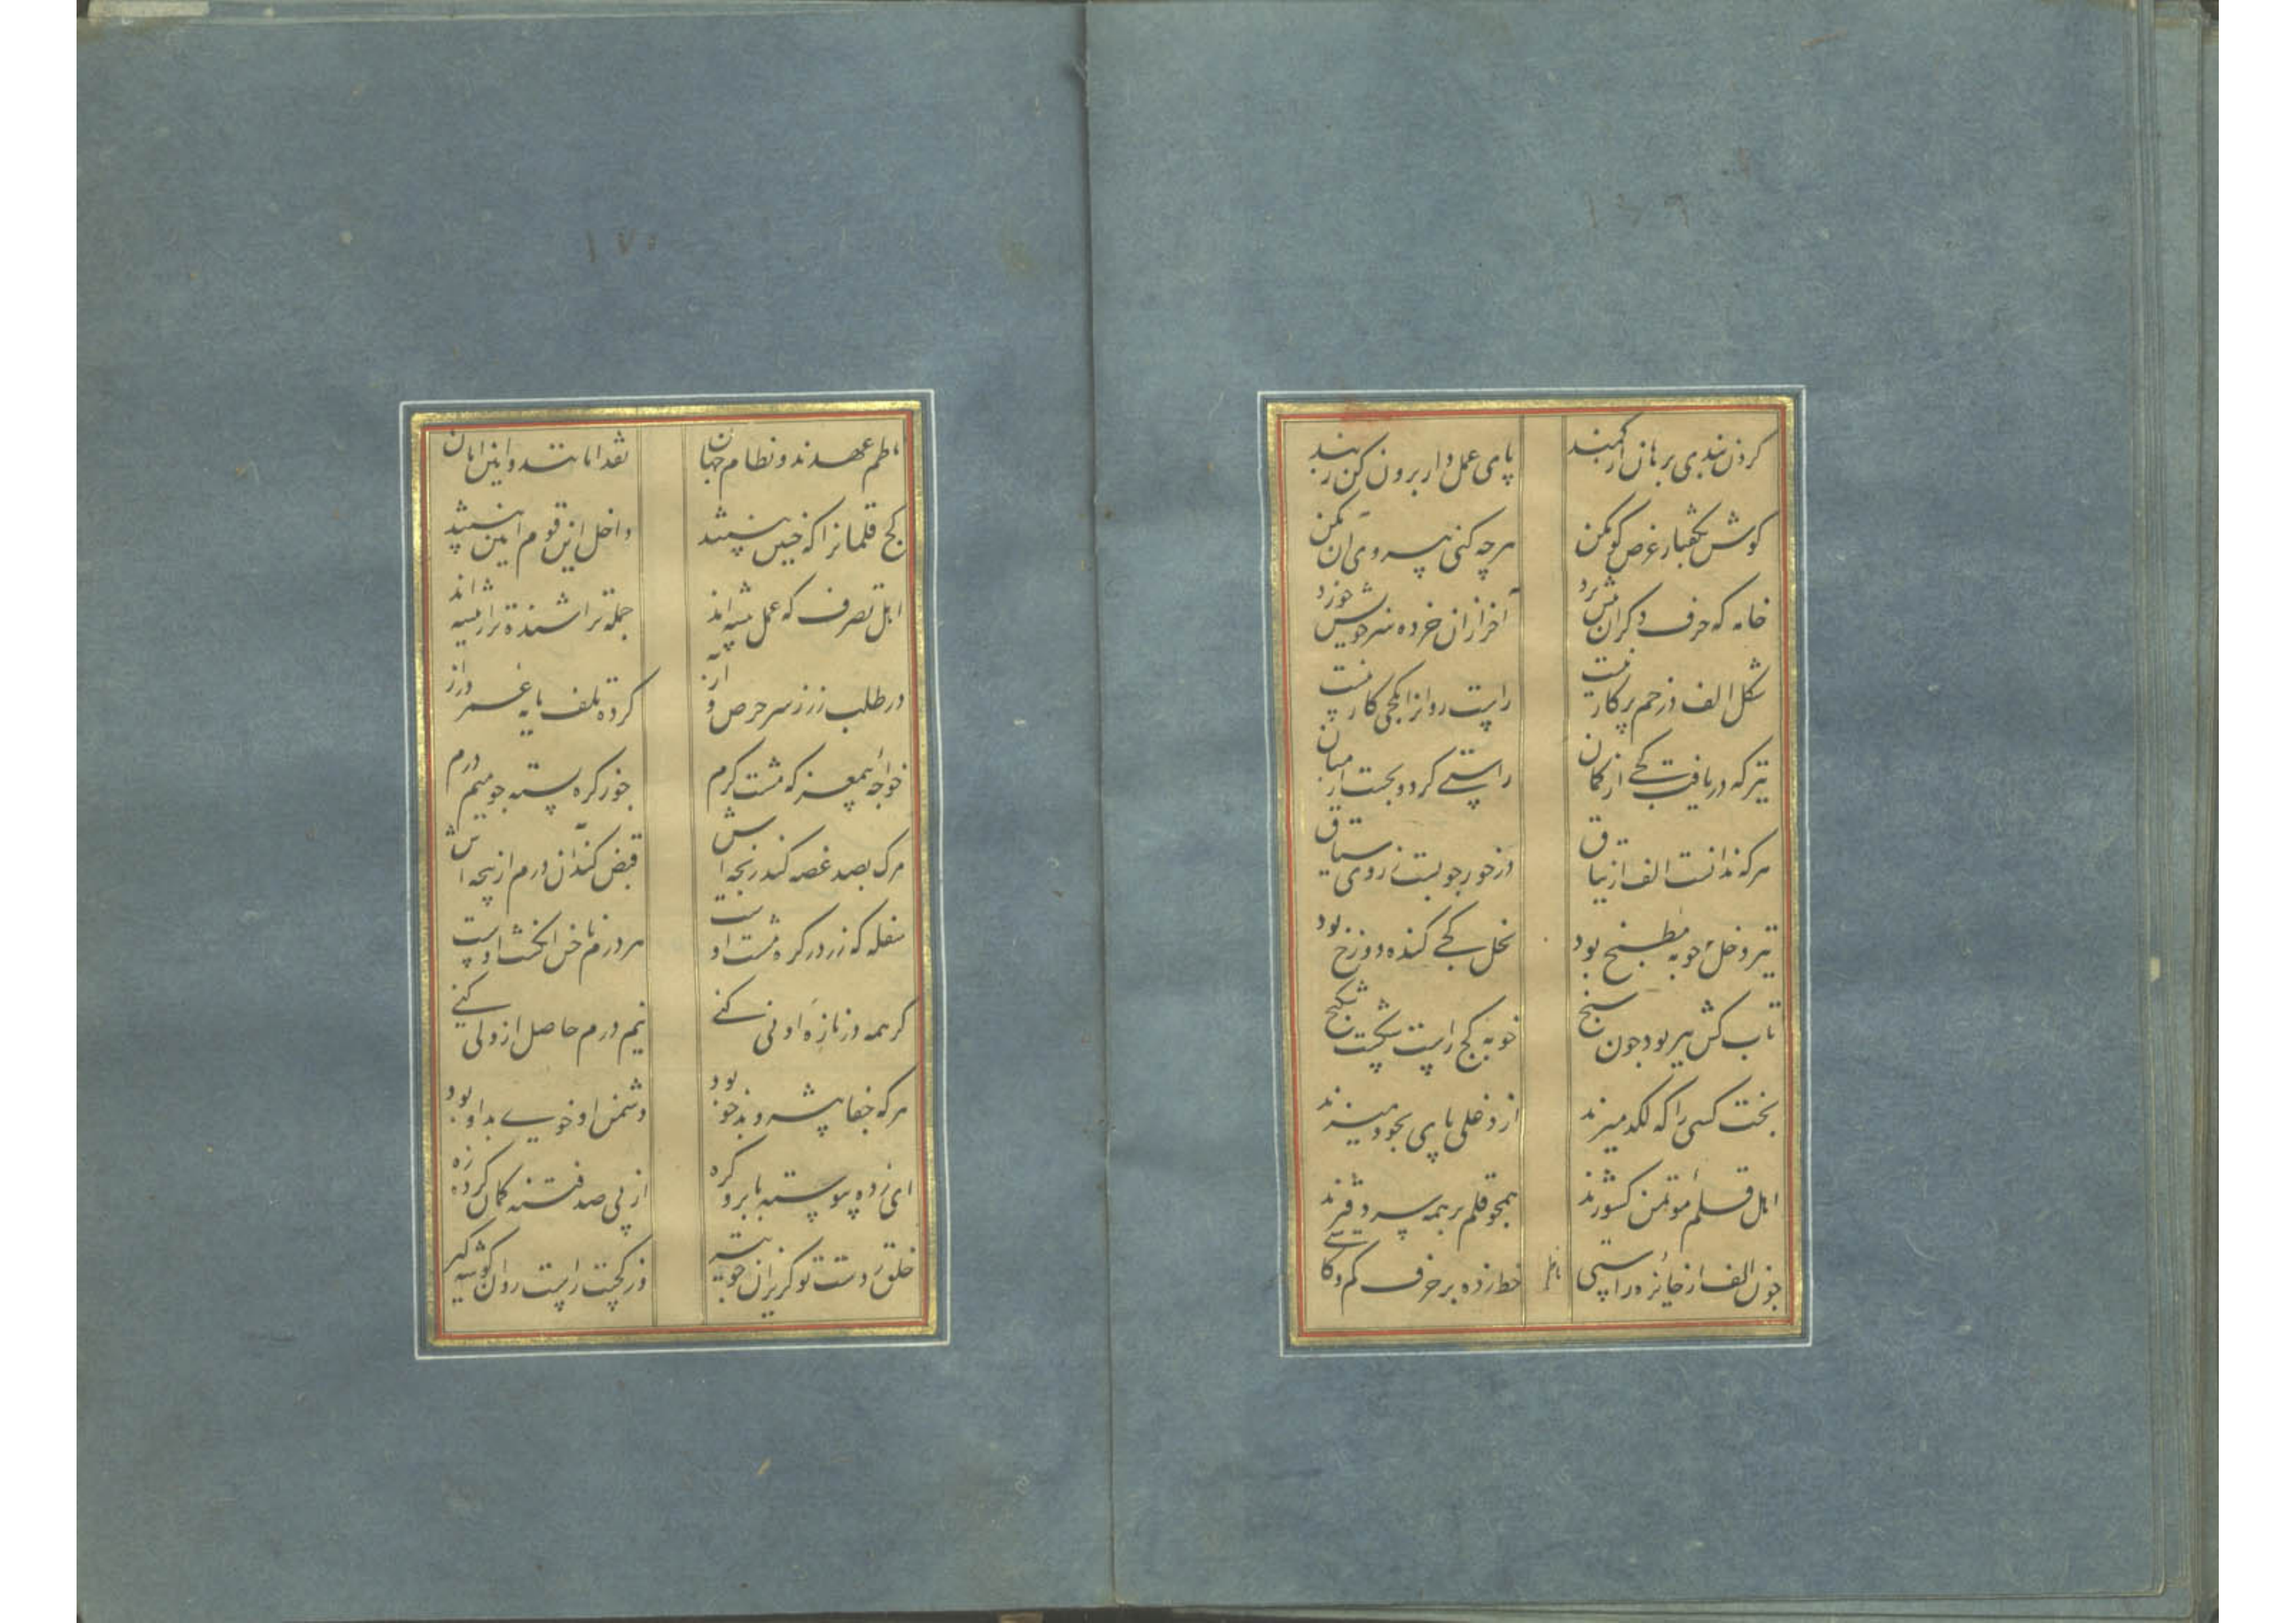 کردن بندبی برهان از کمند پای عمل دار برون کن زبند
کوش بگفتار غرض کو مکن هرچه کنی پیروی آن مکن
خامه که حرف دکران پیش برد آخر از آن خرده سر خویش خورد
شکل الف در خم پرکار نیست راست روانرا بکجی کار نیست
تیر که دریافت کجی از کمان راستیی کرد و بجست از میان
هرکه ندانست الف از نیاق درخور چوبست ز روی سیاق
تیر دغل چوبه مطبخ بود نخل کجی کنده دوزخ بود
تاب کش تیر بود چون سیخ چوبه کج راست شکست شکنج
بخت کسی را که لکد میزند از دغلی پای بخود میزند
اهل قلم موتمن کشورند همچو قلم بر همه سر دفترند
چون الف از خانه در راستی خط زده بر حرف کم و کاستی
ناظم
ناظم عهدند و نظام جهان نقد امانتند و امین امان
کج قلمانرا که چنین نیستند داخل این قوم امین نیستند
اهل تصرف که عمل پیشه‌اند جمله تراشنده‌تر از تیشه‌اند
در طلب زر ز سر حرص و آز کرده تلف مایه عمر دراز
خواجه بیمغز که مشت کرم چون کره بسته چو میم درم
مرک بصد غصه کند رنجه‌اش قبض کند آن درم از پنجه‌اش
سفله که زر در کره مشت اوست هر درم ناخن انکشت اوست
کر همه در تازه او نی کنی نیم درم حاصل ازو کی کنی
هرکه جفا پیشه و بدخو بود دشمن او خوی بد او بود
ای زده پیوسته بابرو کره از پی صد فتنه کمان کرده زه
خلق ز دست تو کریزان چو تیر وز کجیت راست روان کوشه کیر
۱۷۰